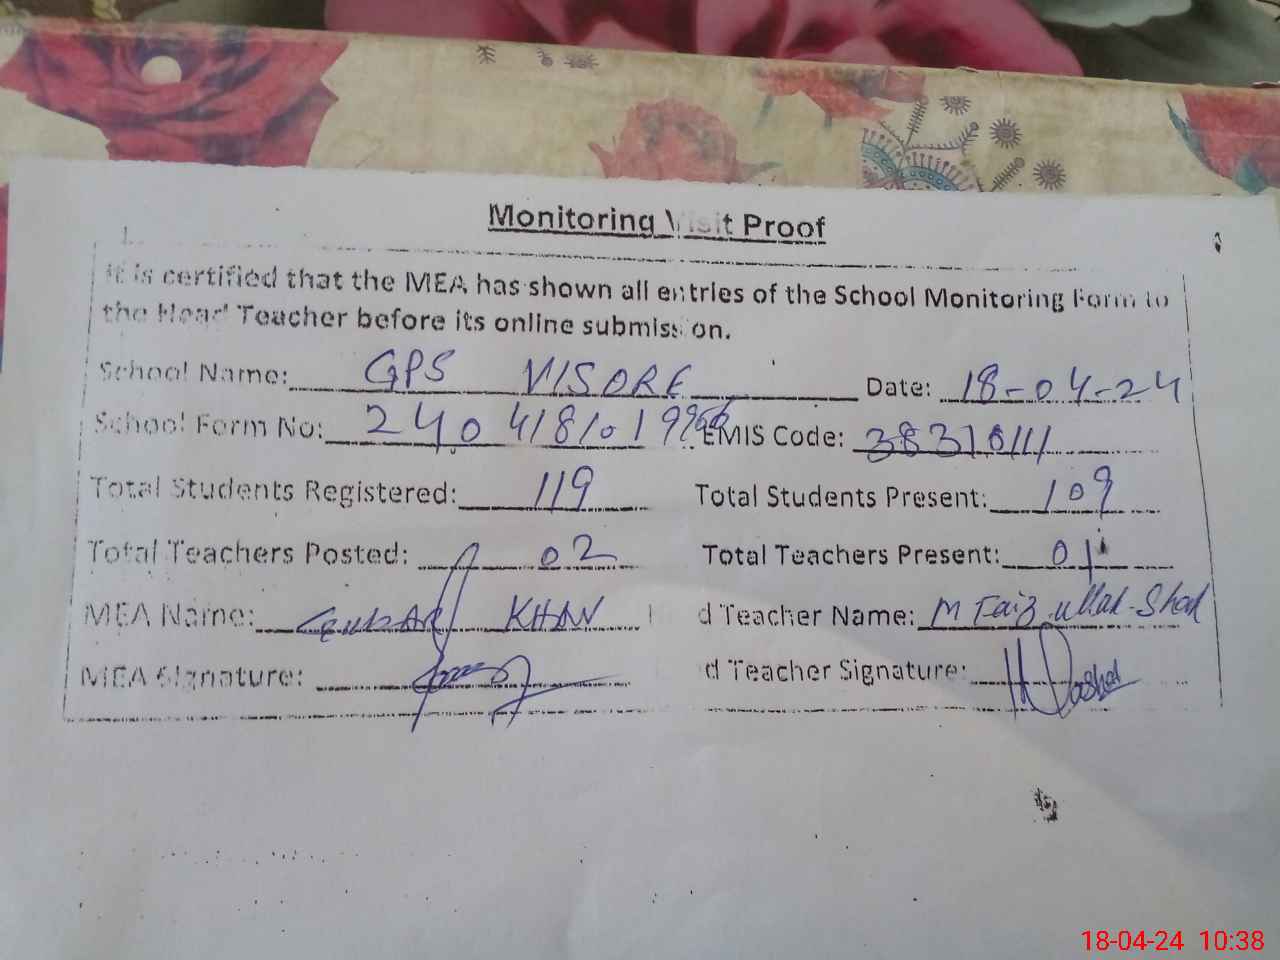 Monitoring Visit Proof
It is certified that the MEA has shown all entries of the School Monitoring Form to
the Head Teacher before its online submission.
School Name: GPS VISORE Date: 18-04-24
School Form No: EMIS Code:
Total Students Registered: 119 Total Students Present: 109
Total Teachers Posted: 02 Total Teachers Present: 01
MEA Name: KHAN d Teacher Name: M Faiz ullah Shah
MEA Signature: d Teacher Signature:
18-04-24 10:38